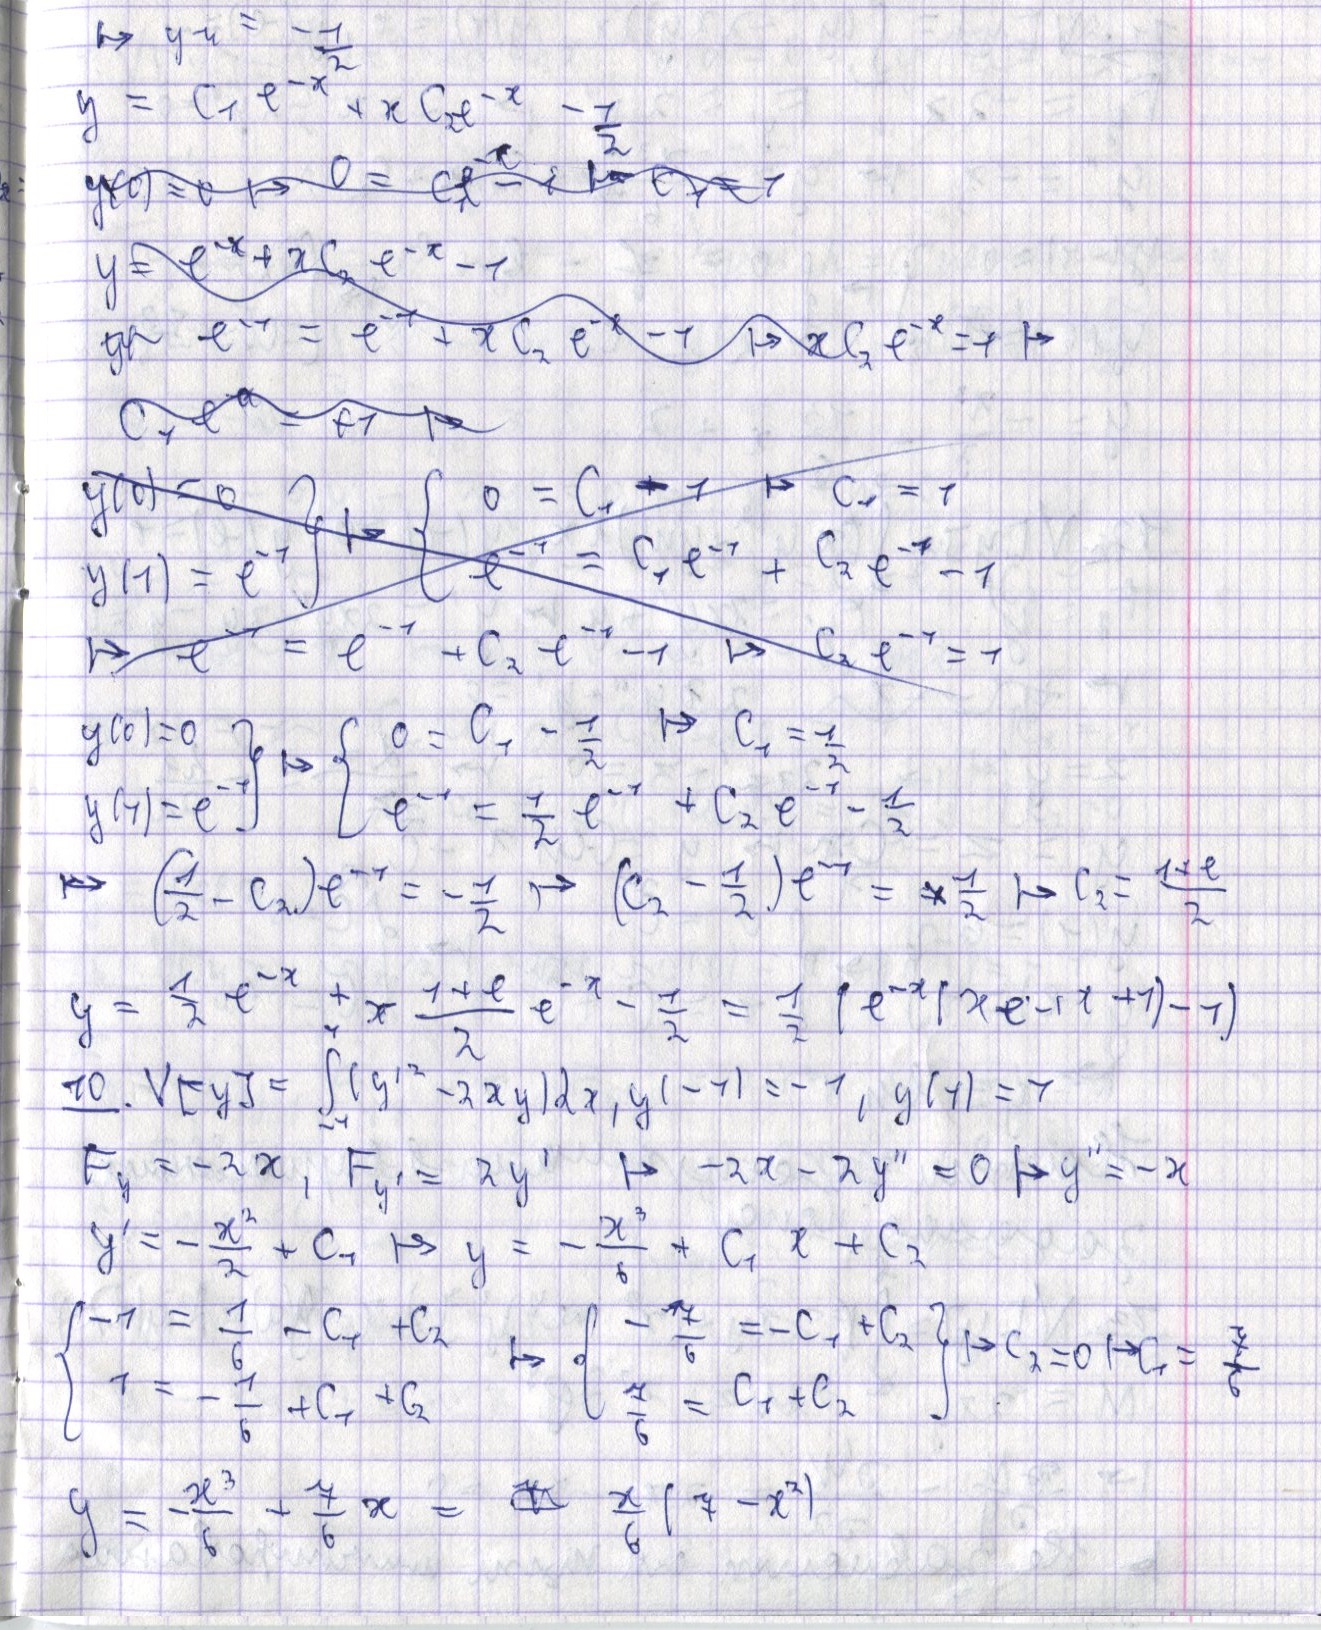 ↦ yч = -1/2
y = C₁ e^{-x} + x C₂e^{-x} - 1/2
y = e^{-x} + x C₂ e^{-x} - 1
e^{-1} = e^{-1} + x C₂ e^{-x} - 1 ↦ x C₂ e^{-x} = 1 ↦
y(0) = 0 } ↦ { 0 = C₁ - 1 ↦ C₁ = 1
y(1) = e^{-1} } { e^{-1} = C₁ e^{-1} + C₂ e^{-1} - 1
↦ e^{-1} = e^{-1} + C₂ e^{-1} - 1 ↦ C₂ e^{-1} = 1
y(0) = 0 } ↦ { 0 = C₁ - 1/2 ↦ C₁ = 1/2
y(1) = e^{-1} } { e^{-1} = 1/2 e^{-1} + C₂ e^{-1} - 1/2
↦ (1/2 - C₂) e^{-1} = -1/2 ↦ (C₂ - 1/2) e^{-1} = 1/2 ↦ C₂ = (1+e)/2
y = 1/2 e^{-x} + x (1+e)/2 e^{-x} - 1/2 = 1/2 (e^{-x}(xe + x + 1) - 1)
10. V[y] = ∫_{-1}^{1} (y'² - 2xy)dx, y(-1) = -1, y(1) = 1
F_y = -2x, F_y' = 2y' ↦ -2x - 2y'' = 0 ↦ y'' = -x
y' = -x²/2 + C₁ ↦ y = -x³/6 + C₁ x + C₂
{ -1 = 1/6 - C₁ + C₂ ↦ { -7/6 = -C₁ + C₂ } ↦ C₂ = 0 ↦ C₁ = 7/6
{ 1 = -1/6 + C₁ + C₂ { 7/6 = C₁ + C₂ }
y = -x³/6 + 7/6 x = x/6 (7 - x²)